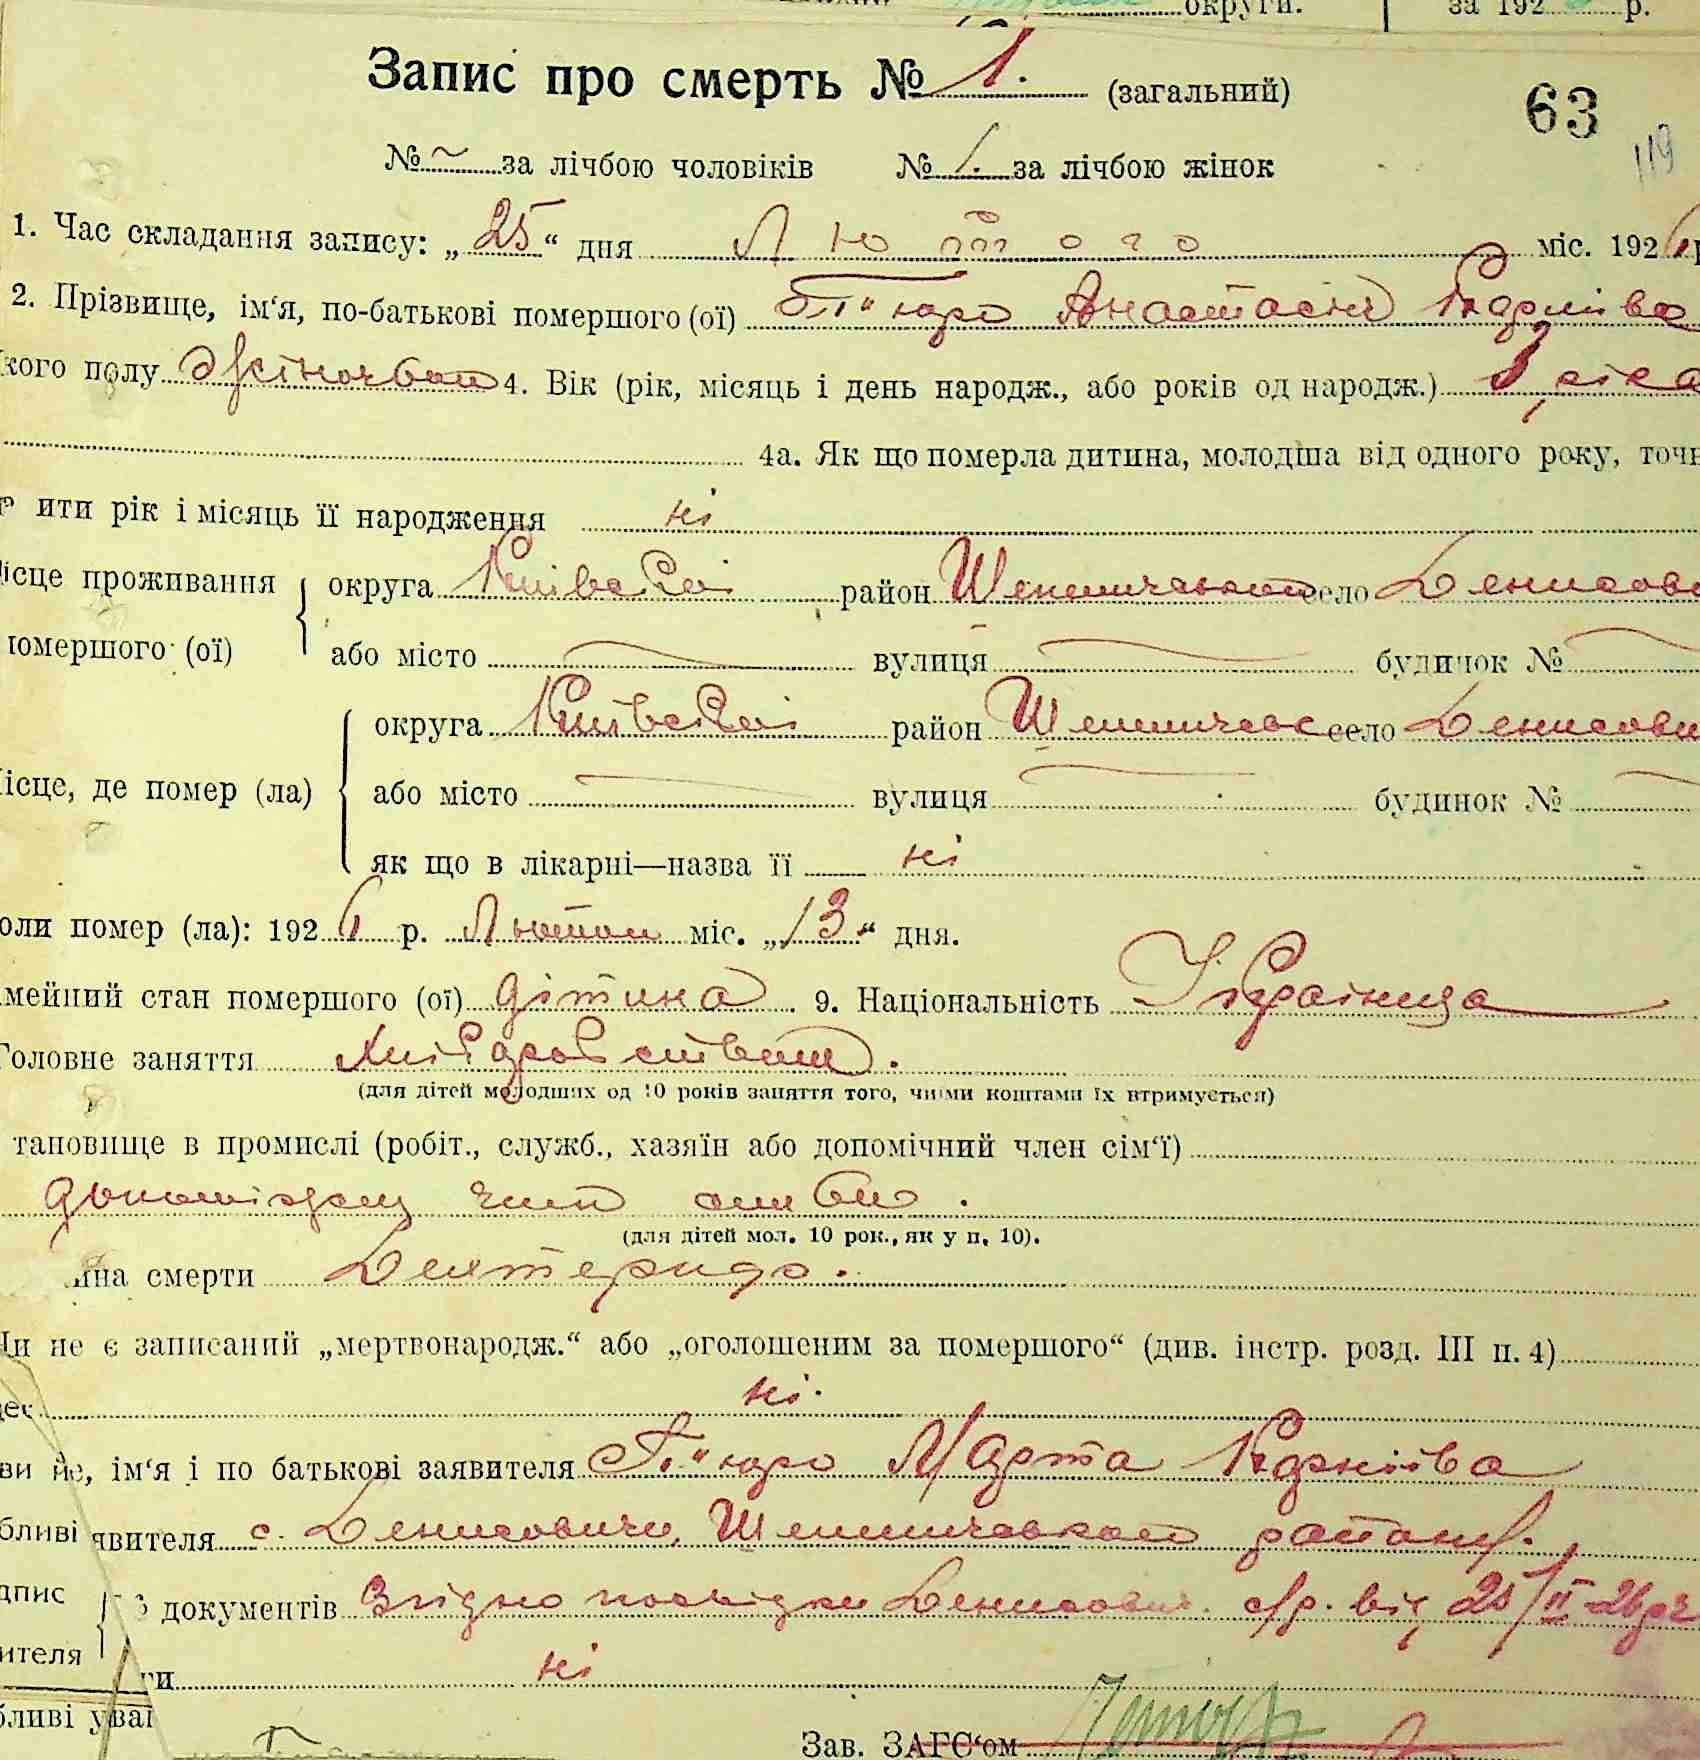 округи. за 192 р.
Запис про смерть № 1. (загальний)
63
119
№ ~ за лічбою чоловіків № 1. за лічбою жінок
1. Час складання запису: „25“ дня Лютого міс. 1926 р
2. Прізвище, ім‘я, по-батькові помершого (ої) Анастасія
кого полу жіночого 4. Вік (рік, місяць і день народж., або років од народж.) ріка
4а. Як що померла дитина, молодша від одного року, точн
ити рік і місяць її народження ні
ісце проживання округа Київської район село Денисови
помершого (ої) або місто вулиця будинок №
округа Київської район село Денисови
ісце, де помер (ла) або місто вулиця будинок №
як що в лікарні—назва її ні
оли помер (ла): 1926 р. Лютого міс. „13“ дня.
мейний стан помершого (ої) дітина 9. Національність Українца
Головне заняття
(для дітей молодших од 10 років заняття того, чиїми коштами їх втримується)
тановище в промислі (робіт., служб., хазяїн або допомічний член сім‘ї)
член
(для дітей мол. 10 рок., як у п. 10).
ина смерти
Чи не є записаний „мертвонародж.“ або „оголошеним за помершого“ (див. інстр. розд. III п. 4)
ні.
ім‘я і по батькові заявителя Марта
бливі явителя с. Денисовичи, району.
дпис документів Згідно посвідки Денисович. с/р. від 25/II-26р
ителя ги ні
бливі уваг
Зав. ЗАГС‘ом